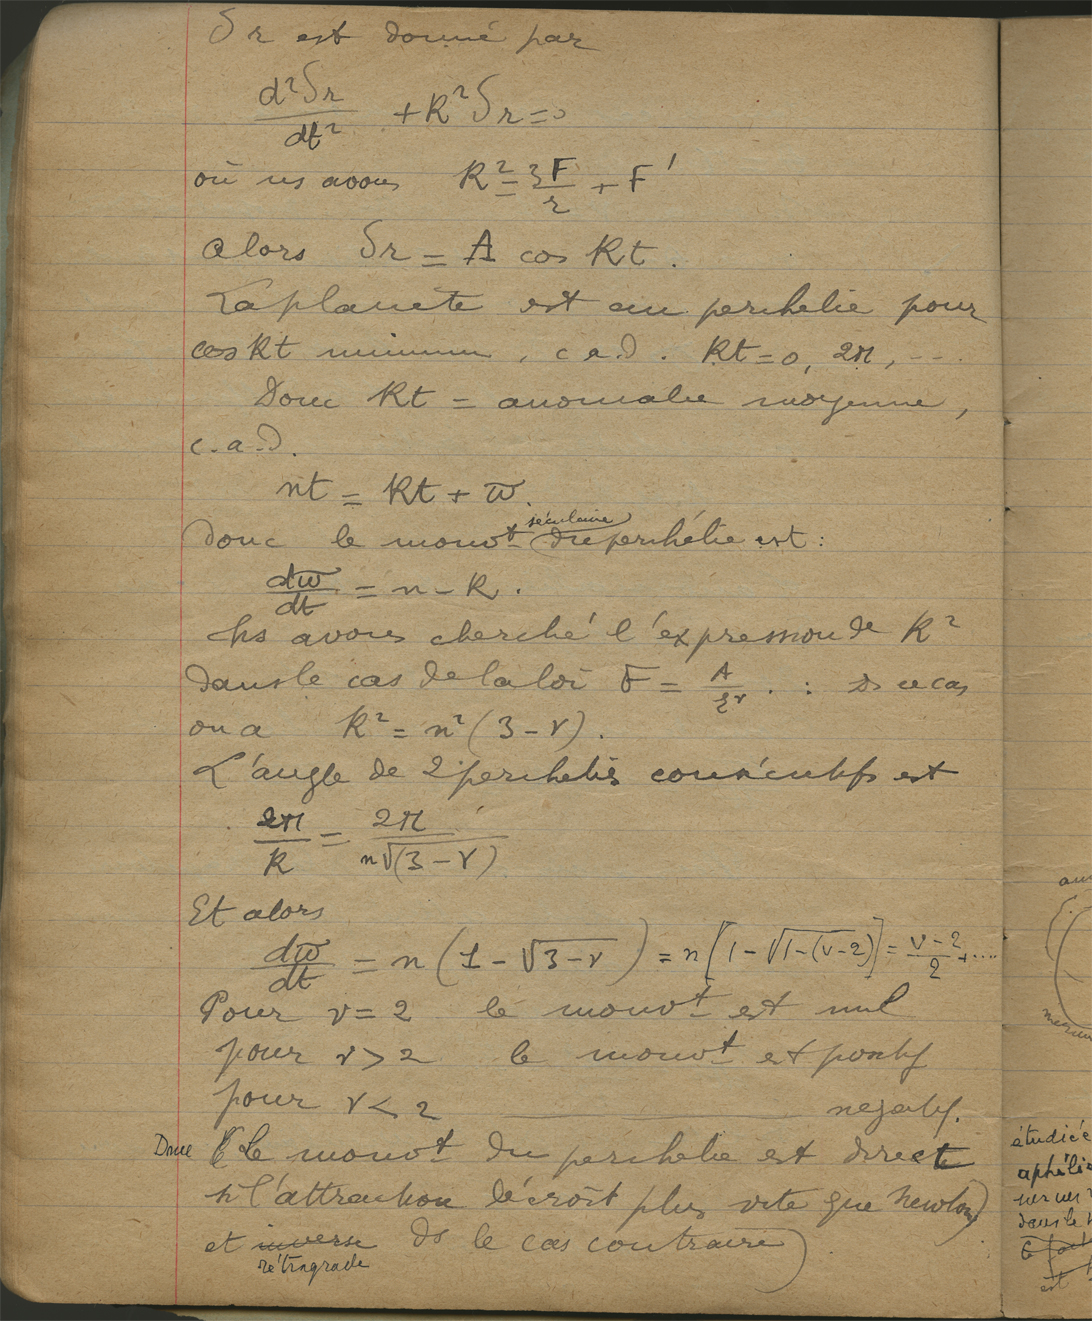 δr est donné par
d²δr/dt² + K²δr = 0
où ns avons K² = 3F/r + F'
alors δr = A cos Kt.
La planète est au perihelie pour
cos Kt minimum, c.a.d. Kt = 0, 2π, ...
Donc Kt = anomalie moyenne,
c.a.d.
nt = Kt + ϖ.
séculaire
Donc le mouvt du perihélie est :
dϖ/dt = n - K.
Ns avons cherché l'expression de K²
dans le cas de la loi F = A/rᵛ . : ds ce cas
on a K² = n²(3 - ν).
L'angle de 2 perihelies consécutifs est
2π/K = 2π/n√(3 - ν)
Et alors
dϖ/dt = n(1 - √3-ν) = n[1 - √1-(ν-2)] = ν-2/2 + ....
Pour ν = 2 le mouvt est nul
pour ν > 2 le mouvt est positif
pour ν < 2 ———— negatif.
Donc (Le mouvt du perihelie est direct
si l'attraction décroît plus vite que Newton)
et inverse ds le cas contraire)
rétrograde
étudiée
aphélie
dans le
est